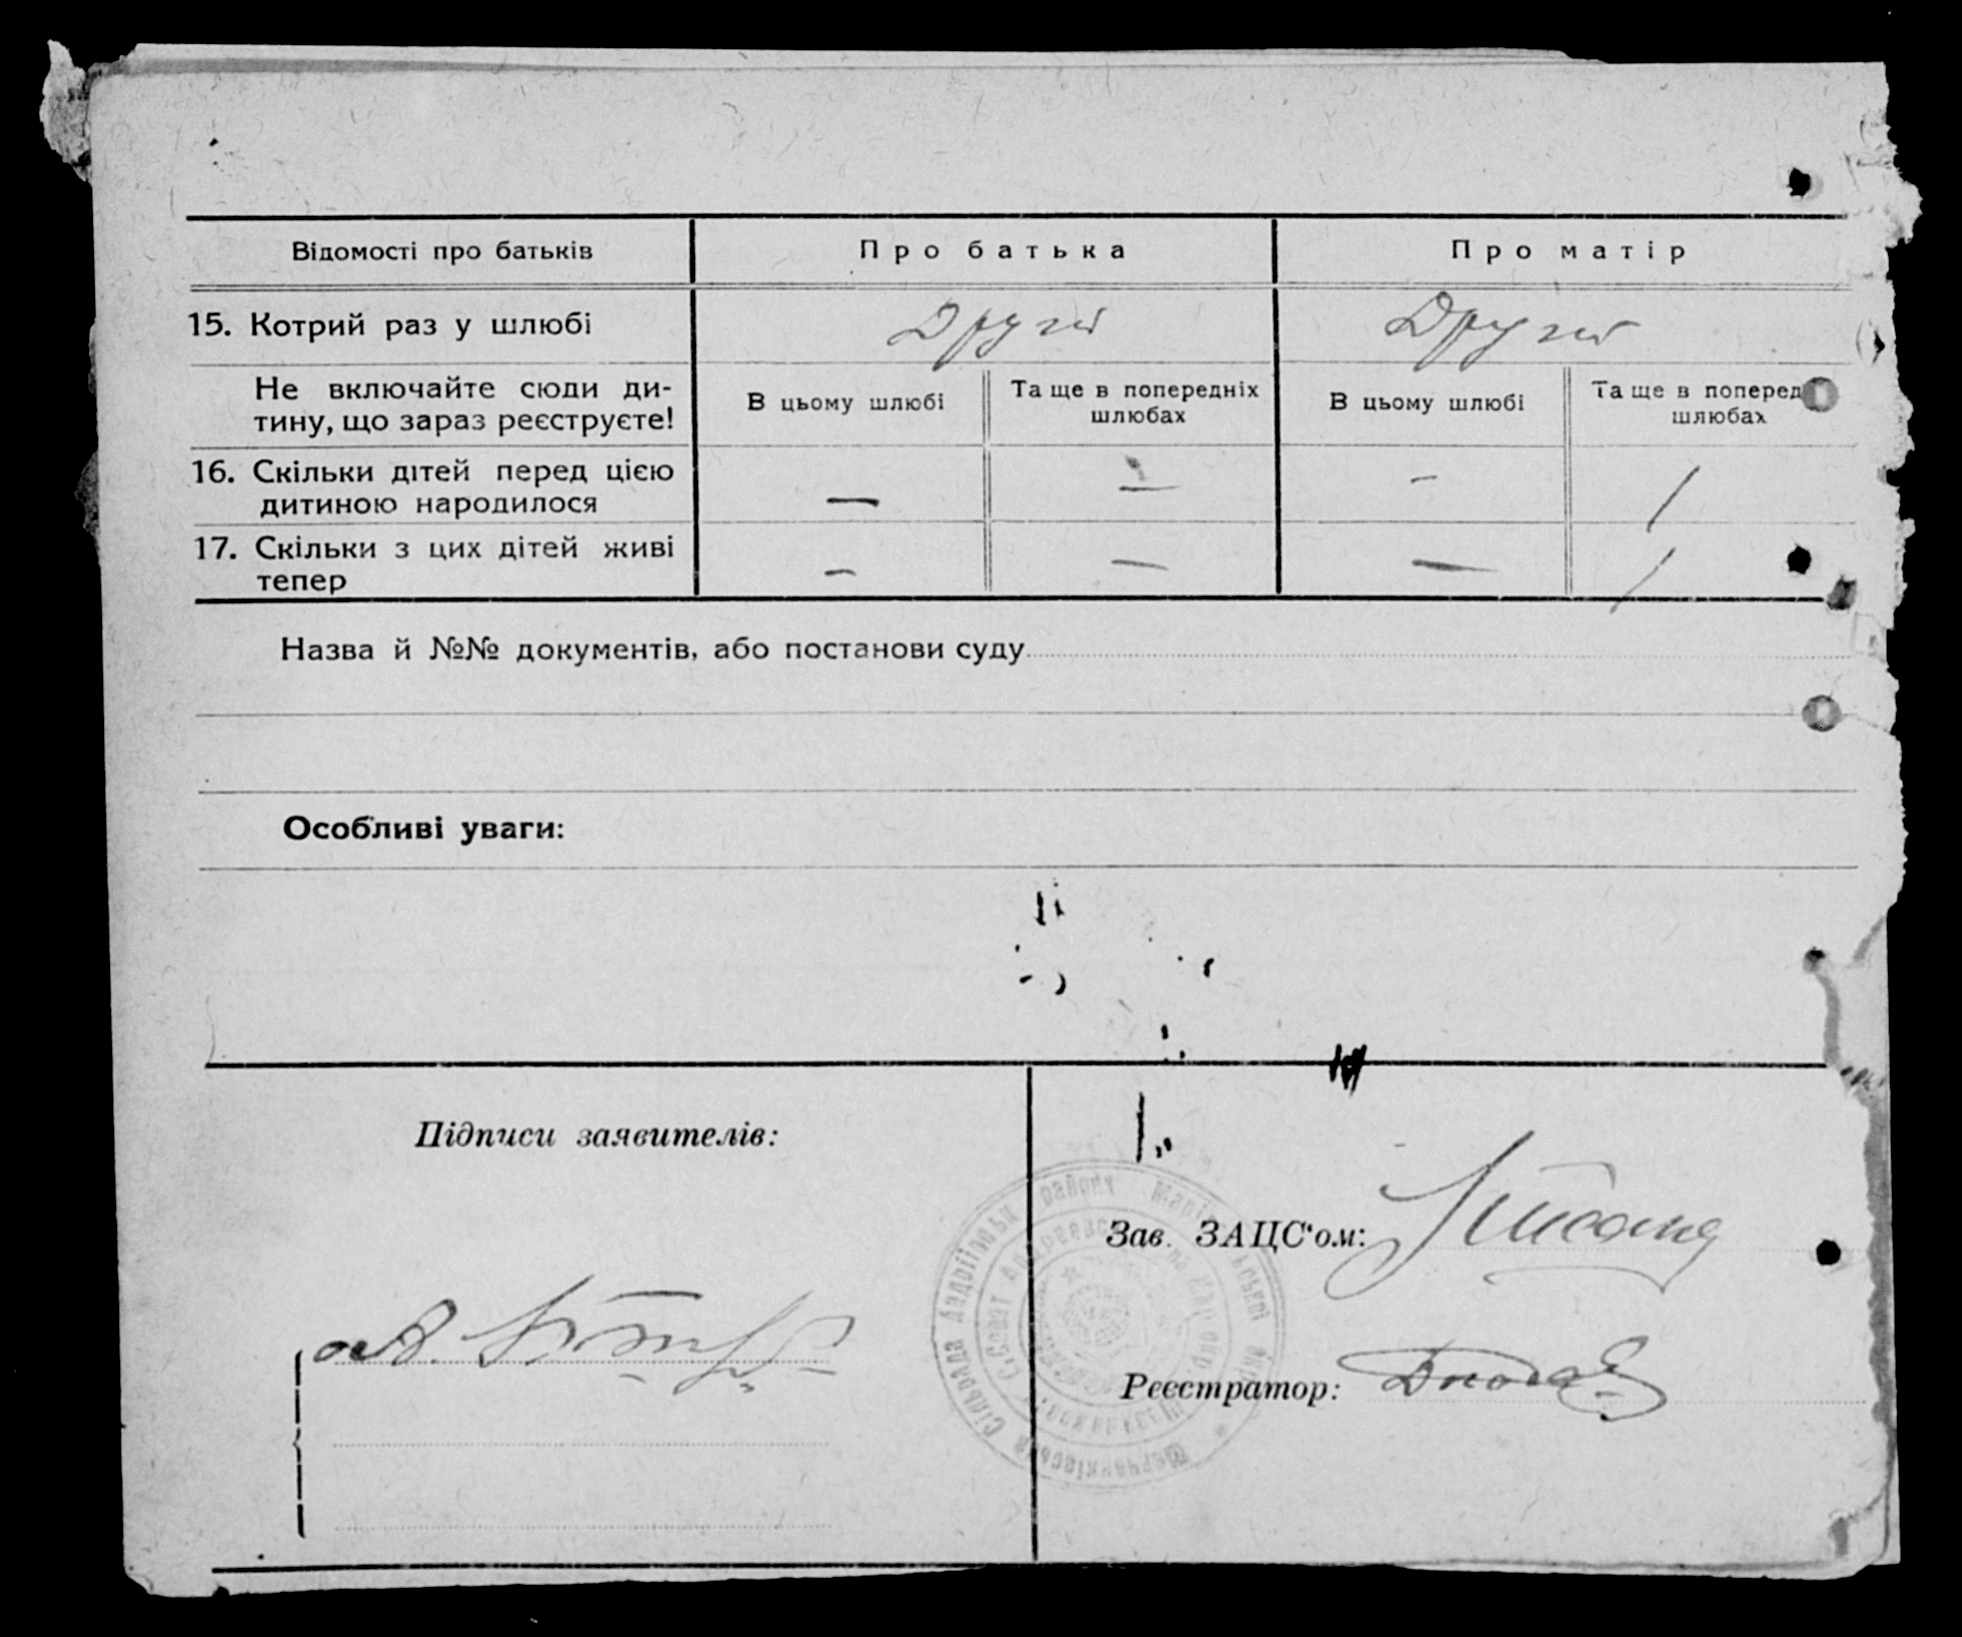 Відомості про батьків
Про батька
Про матір
15. Котрий раз у шлюбі
Другий
Другий
Не включайте сюди ди-
тину, що зараз реєструєте!
В цьому шлюбі
Та ще в попередніх
шлюбах
В цьому шлюбі
Та ще в поперед
шлюбах
16. Скільки дітей перед цією
дитиною народилося
—
—
-
1
17. Скільки з цих дітей живі
тепер
-
—
—
1
Назва й №№ документів, або постанови суду
Особливі уваги:
Підписи заявителів:
Зав. ЗАЦС'ом:
Реєстратор:
Сільрада Андріївськ району Марі